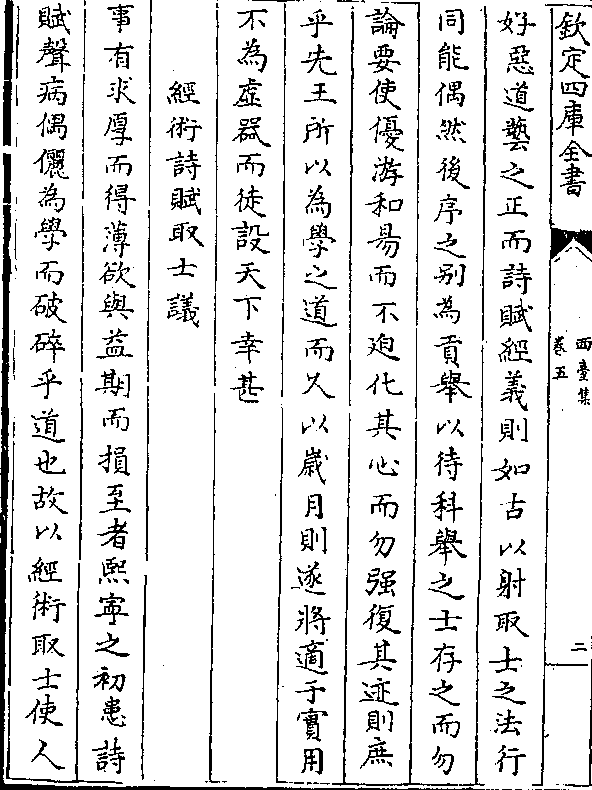 欽定四庫全書
西臺集
卷五
二
好惡道藝之正而詩賦經義則如古以射取士之法行
同能偶然後序之别為貢舉以待科舉之士存之而勿
論要使優游和易而不廹化其心而勿强復其迹則庶
乎先王所以為學之道而久以嵗月則遂將適于實用
不為虛器而徒設天下幸甚
經術詩賦取士議
事有求厚而得薄欲與益期而損至者熙寧之初患詩
賦聲病偶儷為學而破碎乎道也故以經術取士使人